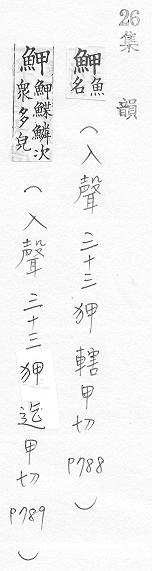 26
集韻
鮃魚名（入聲三十三狎轄甲切P788）
鮃鮃鰈鱗次眾多皃（入聲三十三狎迄甲切P789）